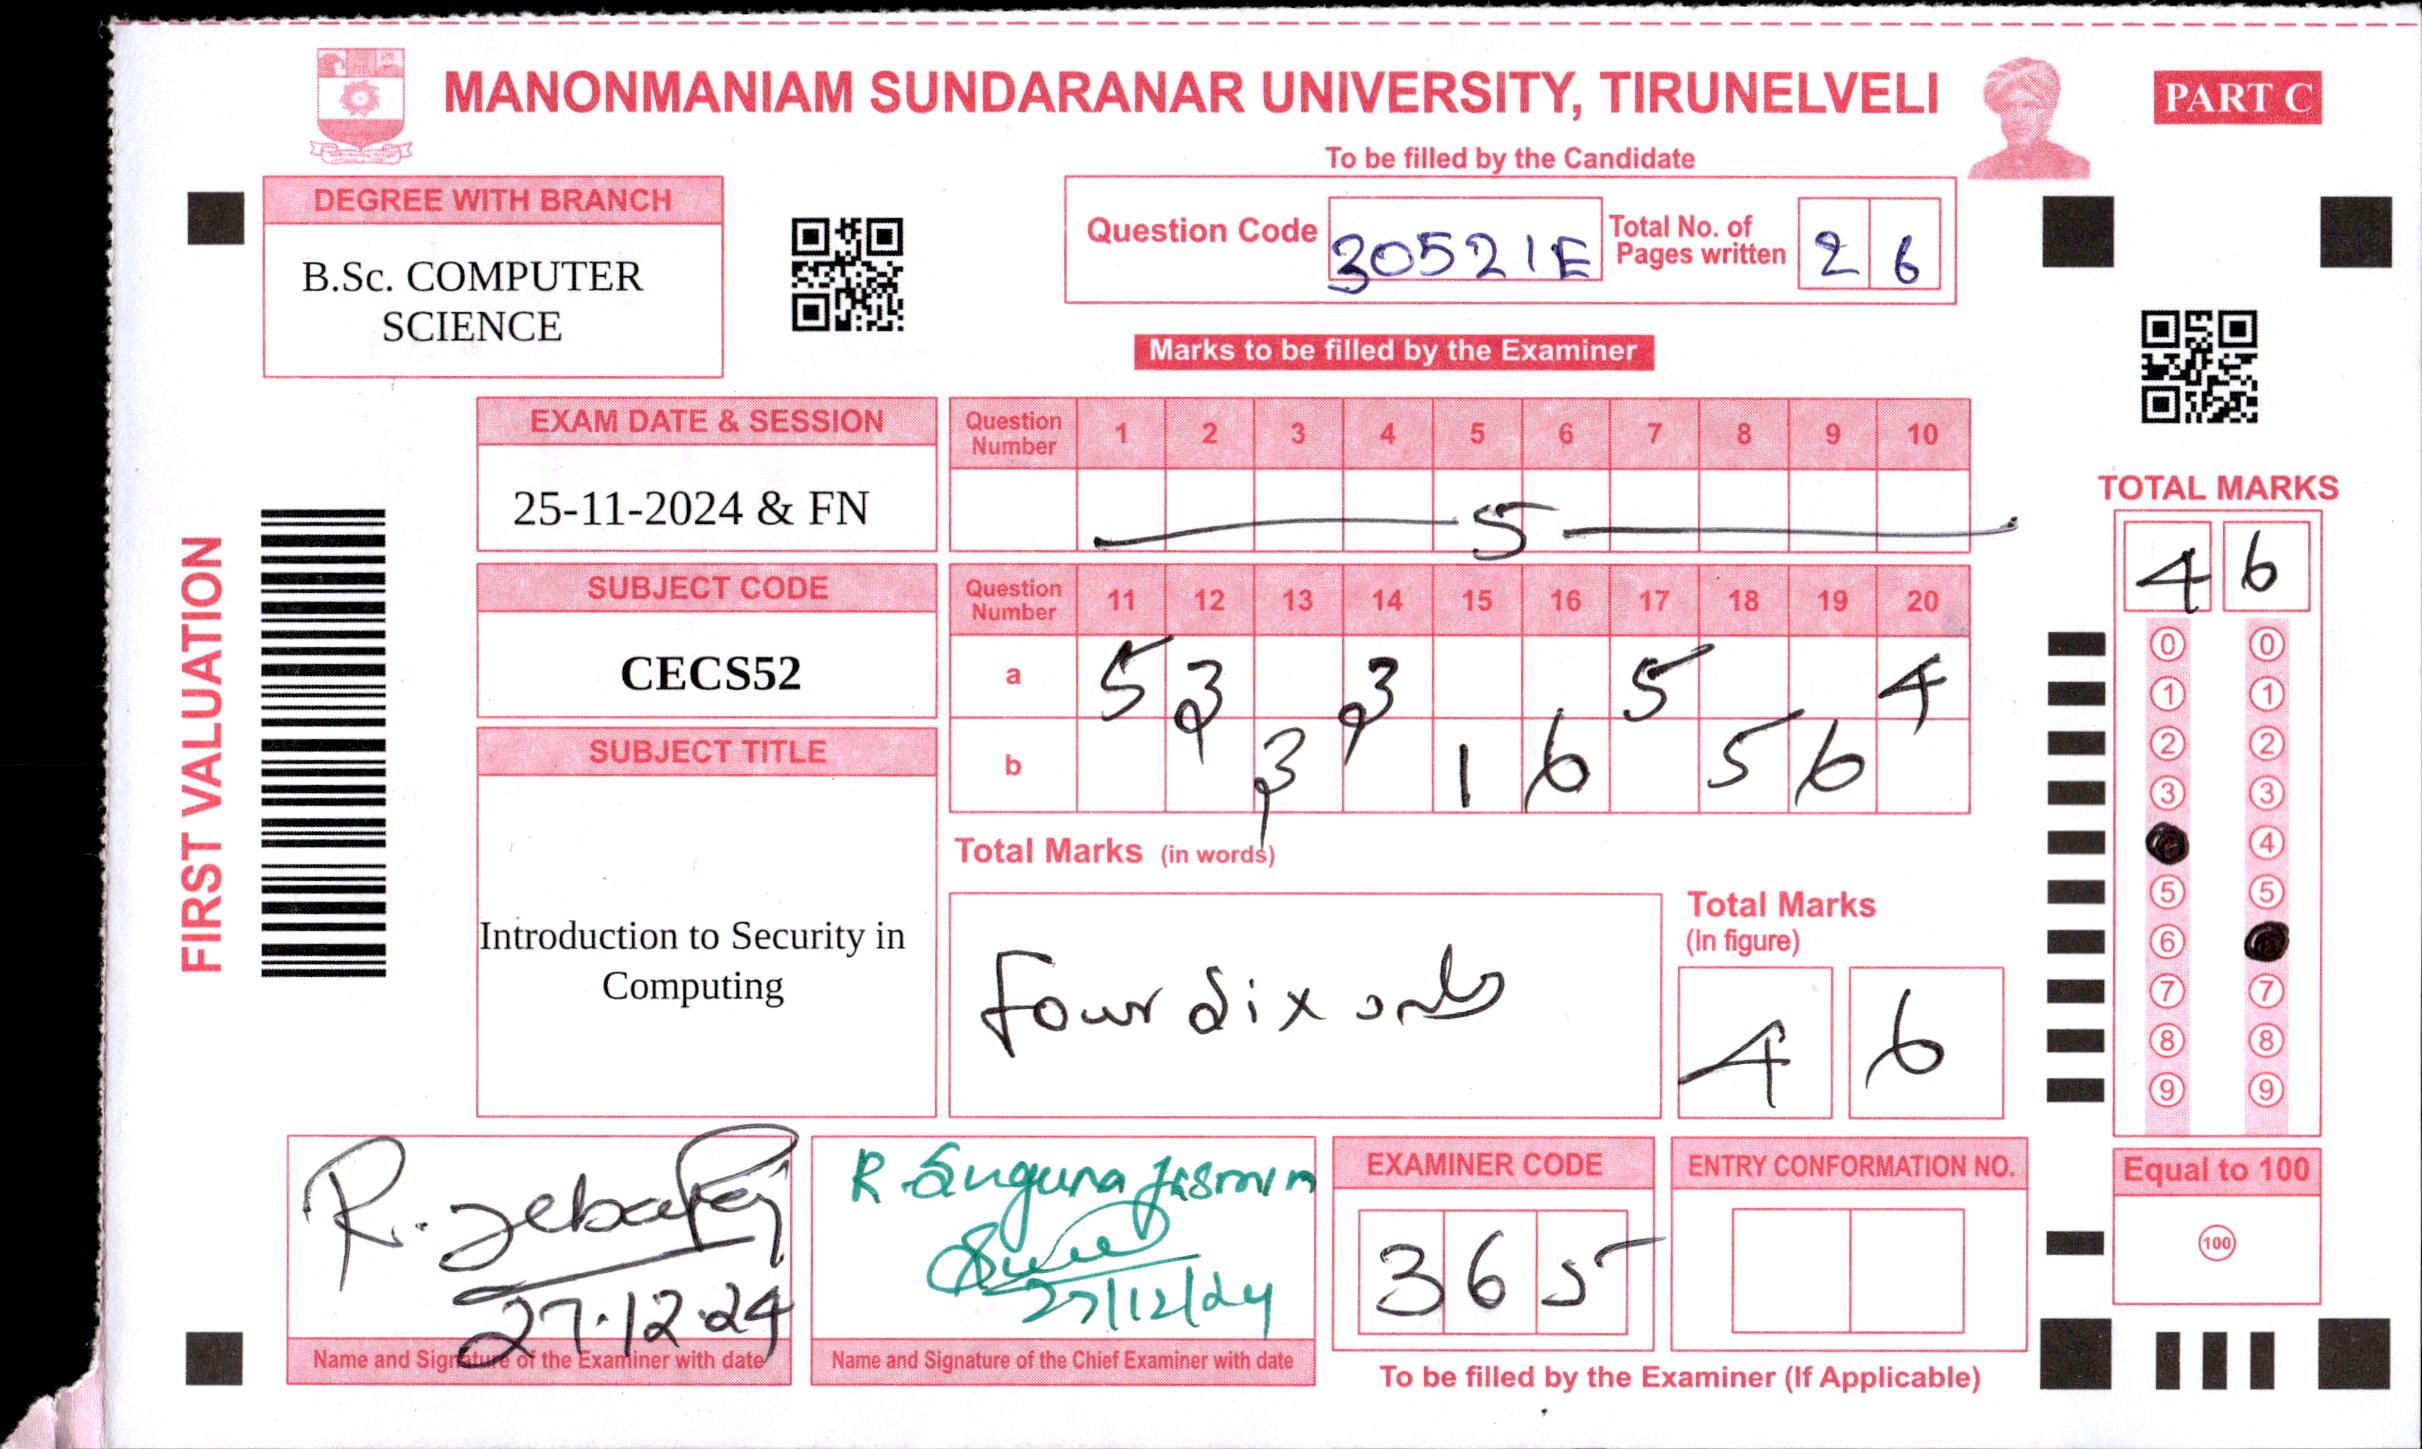 MANONMANIAM SUNDARANAR UNIVERSITY, TIRUNELVELI
PART C
To be filled by the Candidate
DEGREE WITH BRANCH
B.Sc. COMPUTER
SCIENCE
Question Code 30521E Total No. of Pages written 2 6
Marks to be filled by the Examiner
FIRST VALUATION
EXAM DATE & SESSION
25-11-2024 & FN
SUBJECT CODE
CECS52
SUBJECT TITLE
Introduction to Security in
Computing
Question Number 1 2 3 4 5 6 7 8 9 10
5
Question Number 11 12 13 14 15 16 17 18 19 20
a 5 3 3 5 4
b 3 1 6 5 6
Total Marks (in words)
Four Six only
Total Marks
(In figure)
4 6
TOTAL MARKS
4 6
0 0
1 1
2 2
3 3
4
5 5
6
7 7
8 8
9 9
Equal to 100
100
27.12.24
Name and Signature of the Examiner with date
R. Suguna Jasmin
27/12/24
Name and Signature of the Chief Examiner with date
EXAMINER CODE
3 6 5
ENTRY CONFORMATION NO.
To be filled by the Examiner (If Applicable)